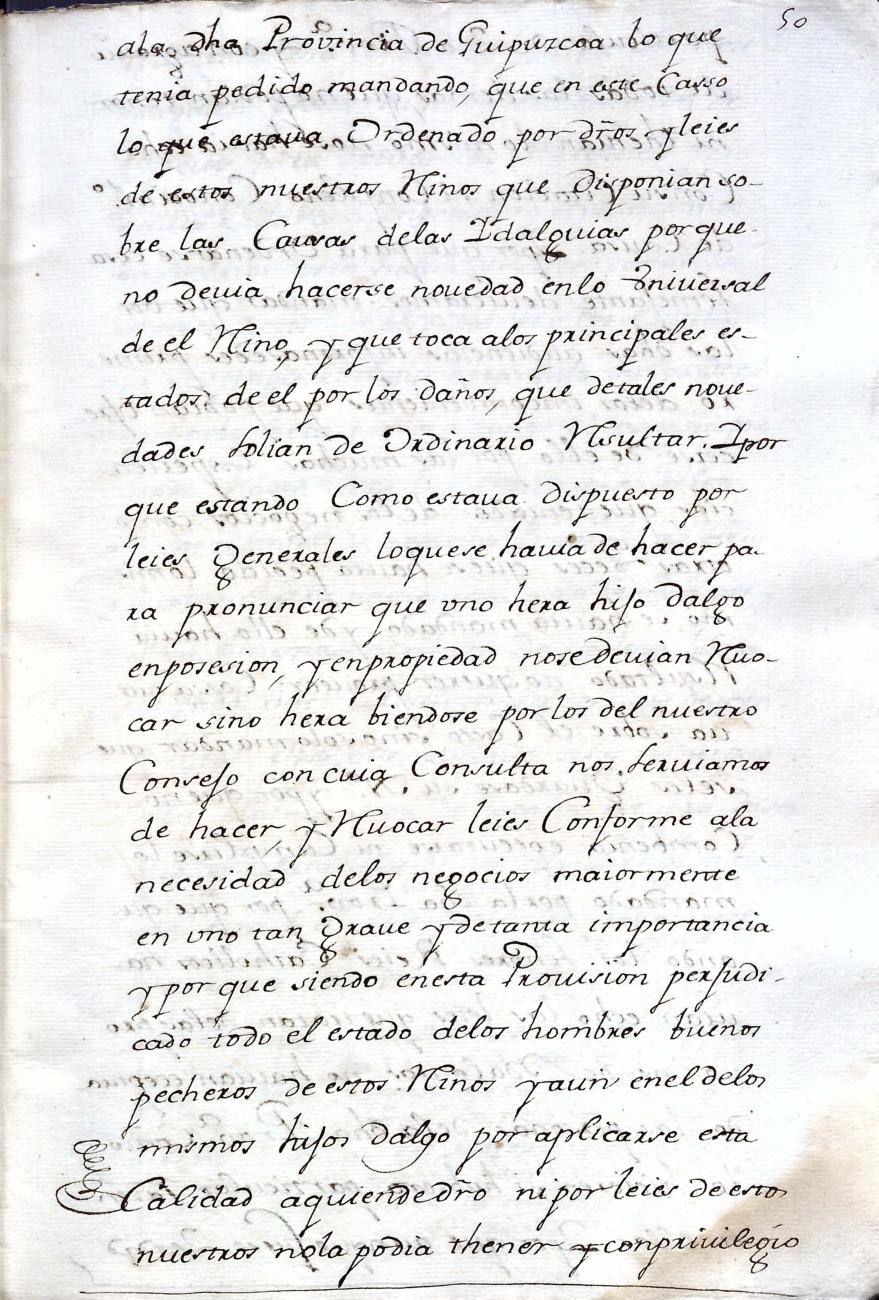 50
ala dha Provincia de Guipuzcoa lo que
tenia pedido mandando, que en este Casso
lo que estava Ordenado por dr̃os y leies
de estos nuestros Rinos que Disponian so-
bre las Causas delas Idalguias porque
no devia hacerse novedad enlo Vniversal
de el Rino, y que toca alos principales es-
tados de el por los daños, que detales nove-
dades solian de Ordinario Rsultar. Ypor
que estando Como estava dispuesto por
leies Generales loquese, havia de hacer pa-
ra pronunciar que vno hera hijo dalgo
enposesion, y enpropiedad nosedevian Rvo-
car sino hera biendose por los del nuestro
Consejo con cuia Consulta nos serviamos
de hacer, y Rvocar leies Conforme ala
necesidad delos negocios maiormente
en vno tan Grave y detanta importancia
y por que siendo enesta Provision perjudi-
cado todo el estado delos hombres buenos
pecheros de estos Rinos y aun enel delos
mismos hijos dalgo por aplicarse esta
Calidad aquiende dr̃o ni por leies de estos
nuestros nola podia thener y conprivilegio